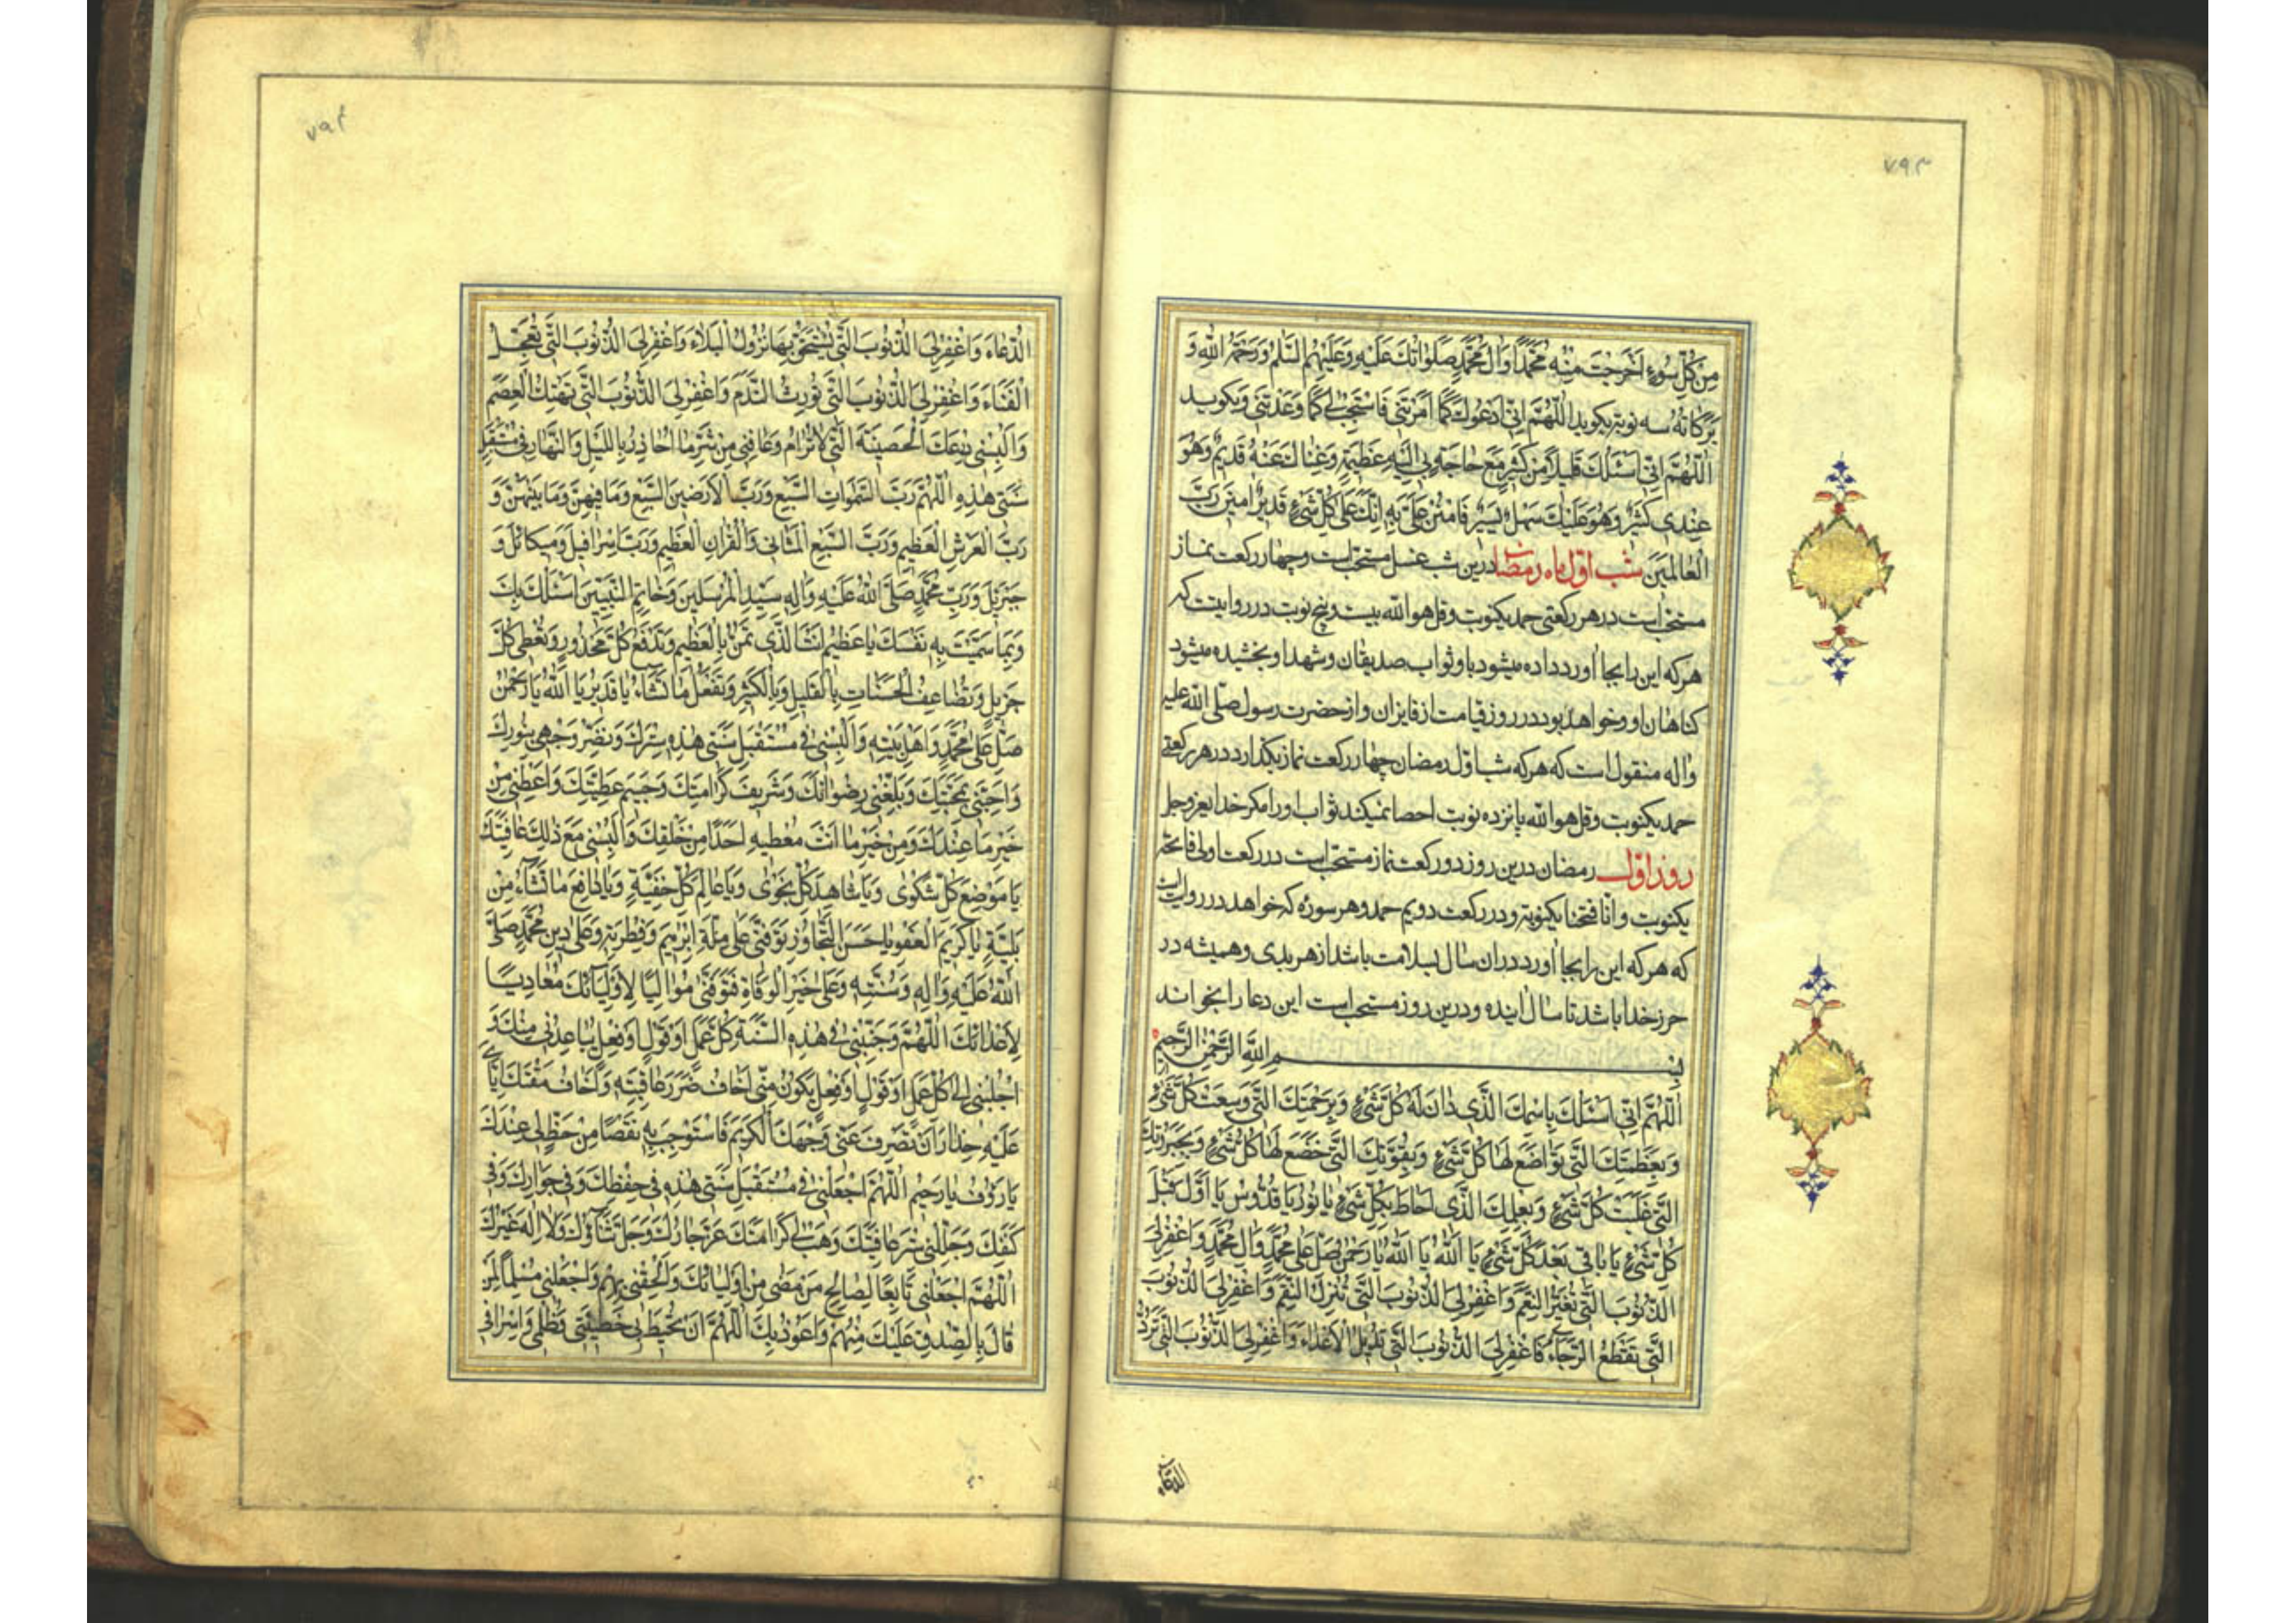 ٧٩٣
مِنْ كُلِّ سُوءٍ اَخْرَجْتَ مِنْهُ مُحَمَّدًا وَالَ مُحَمَّدٍ صَلَوٰاتُكَ عَلَيْهِ وَعَلَيْهِمُ السَّلٰمُ وَرَحْمَةُ اللّٰهِ وَ
بَرَكَاتُهُ سه نوبة بكويد اَللّٰهُمَّ اِنِّي اَدْعُوكَ كَمَا اَمَرْتَنِي فَاسْتَجِبْ لِي كَمَا وَعَدْتَنِي وبكويد
اَللّٰهُمَّ اِنِّي اَسْئَلُكَ قَلِيلًا مِنْ كَثِيرٍ مَعَ حَاجَةٍ بِي اِلَيْهِ عَظِيمَةٍ وَغِنَاكَ عَنْهُ قَدِيمٌ وَهُوَ
عِنْدِي كَثِيرٌ وَهُوَ عَلَيْكَ سَهْلٌ يَسِيرٌ فَامْنُنْ عَلَيَّ بِهِ اِنَّكَ عَلٰى كُلِّ شَيْءٍ قَدِيرٌ امِينَ رَبَّ
الْعَالَمِينَ شب اول ماه رمضان درين شب غسل مستحبست وچهار ركعت نماز
مستحبست در هر ركعتى حمد يكنوبت وقل هو الله بيست وپنج نوبت در روايتست كه
هر كه اين را بجا اورد داده ميشود باو ثواب صديقان وشهدا وبخشيده ميشود
كناهان او وخواهد بود در روز قيامت از فايزان واز حضرت رسول صلّى الله عليه
واله منقول است كه هر كه شب اوّل رمضان چهار ركعت نماز بكذارد در هر ركعتى
حمد يكنوبت وقل هو الله پانزده نوبت احصا نميكند ثواب او را مكر خداى عزوجل
روز اول رمضان درين روز دو ركعت نماز مستحبست در ركعت اولى فاتحه
يكنوبت وانّا فتحنا يكنوبة ودر ركعت دويم حمد وهر سوره كه خواهد در روايتست
كه هر كه اين را بجا اورد در ان سال بسلامت باشد از هر بدى وهميشه در
حرز خدا باشد تا سال اينده ودرين روز مستحبست اين دعا را بخواند
بِسْمِ اللّٰهِ الرَّحْمٰنِ الرَّحِيمِ
اَللّٰهُمَّ اِنِّي اَسْئَلُكَ بِاسْمِكَ الَّذِي دَانَ لَهُ كُلُّ شَيْءٍ وَبِرَحْمَتِكَ الَّتِي وَسِعَتْ كُلَّ شَيْءٍ
وَبِعَظَمَتِكَ الَّتِي تَوَاضَعَ لَهَا كُلُّ شَيْءٍ وَبِقُوَّتِكَ الَّتِي خَضَعَ لَهَا كُلُّ شَيْءٍ وَبِجَبَرُوتِكَ
الَّتِي غَلَبَتْ كُلَّ شَيْءٍ وَبِعِلْمِكَ الَّذِي اَحَاطَ بِكُلِّ شَيْءٍ يَا نُورُ يَا قُدُّوسُ يَا اَوَّلَ قَبْلَ
كُلِّ شَيْءٍ يَا بَاقِي بَعْدَ كُلِّ شَيْءٍ يَا اَللّٰهُ يَا اَللّٰهُ يَا رَحْمٰنُ صَلِّ عَلٰى مُحَمَّدٍ وَالِ مُحَمَّدٍ وَاغْفِرْ لِيَ
الذُّنُوبَ الَّتِي تُغَيِّرُ النِّعَمَ وَاغْفِرْ لِيَ الذُّنُوبَ الَّتِي تُنْزِلُ النِّقَمَ وَاغْفِرْ لِيَ الذُّنُوبَ
الَّتِي تَقْطَعُ الرَّجَاءَ وَاغْفِرْ لِيَ الذُّنُوبَ الَّتِي تُدِيلُ الْاَعْدَاءَ وَاغْفِرْ لِيَ الذُّنُوبَ الَّتِي تَرُدُّ
الدُّعَاءَ
٧٩٤
الدُّعَاءَ وَاغْفِرْ لِيَ الذُّنُوبَ الَّتِي يُسْتَحَقُّ بِهَا نُزُولُ الْبَلَاءِ وَاغْفِرْ لِيَ الذُّنُوبَ الَّتِي تُعَجِّلُ
الْفَنَاءَ وَاغْفِرْ لِيَ الذُّنُوبَ الَّتِي تُورِثُ النَّدَمَ وَاغْفِرْ لِيَ الذُّنُوبَ الَّتِي تَهْتِكُ الْعِصَمَ
وَاَلْبِسْنِي دِرْعَكَ الْحَصِينَةَ الَّتِي لَا تُرَامُ وَعَافِنِي مِنْ شَرِّ مَا اُحَاذِرُ بِاللَّيْلِ وَالنَّهَارِ فِي مُسْتَقْبَلِ
سَنَتِي هٰذِهِ اَللّٰهُمَّ رَبَّ السَّمٰوَاتِ السَّبْعِ وَرَبَّ الْاَرَضِينَ السَّبْعِ وَمَا فِيهِنَّ وَمَا بَيْنَهُنَّ وَ
رَبَّ الْعَرْشِ الْعَظِيمِ وَرَبَّ السَّبْعِ الْمَثَانِي وَالْقُرْانِ الْعَظِيمِ وَرَبَّ اِسْرَافِيلَ وَمِيكَائِلَ وَ
جَبْرَئِلَ وَرَبَّ مُحَمَّدٍ صَلَّى اللّٰهُ عَلَيْهِ وَالِهِ سَيِّدِ الْمُرْسَلِينَ وَخَاتَمِ النَّبِيِّينَ اَسْئَلُكَ بِكَ
وَبِمَا سَمَّيْتَ بِهِ نَفْسَكَ يَا عَظِيمُ اَنْتَ الَّذِي تَمُنُّ بِالْعَظِيمِ وَتَدْفَعُ كُلَّ مَحْذُورٍ وَتُعْطِي كُلَّ
جَزِيلٍ وَتُضَاعِفُ الْحَسَنَاتِ بِالْقَلِيلِ وَبِالْكَثِيرِ وَتَفْعَلُ مَا تَشَاءُ يَا قَدِيرُ يَا اَللّٰهُ يَا رَحْمٰنُ
صَلِّ عَلٰى مُحَمَّدٍ وَاَهْلِ بَيْتِهِ وَاَلْبِسْنِي فِي مُسْتَقْبَلِ سَنَتِي هٰذِهِ سِتْرَكَ وَنَضِّرْ وَجْهِي بِنُورِكَ
وَاَحِبَّنِي بِمَحَبَّتِكَ وَبَلِّغْنِي رِضْوَانَكَ وَشَرِيفَ كَرَامَتِكَ وَجَسِيمَ عَطِيَّتِكَ وَاَعْطِنِي مِنْ
خَيْرِ مَا عِنْدَكَ وَمِنْ خَيْرِ مَا اَنْتَ مُعْطِيهِ اَحَدًا مِنْ خَلْقِكَ وَاَلْبِسْنِي مَعَ ذٰلِكَ عَافِيَتَكَ
يَا مَوْضِعَ كُلِّ شَكْوٰى وَيَا شَاهِدَ كُلِّ نَجْوٰى وَيَا عَالِمَ كُلِّ خَفِيَّةٍ وَيَا دَافِعَ مَا تَشَاءُ مِنْ
بَلِيَّةٍ يَا كَرِيمَ الْعَفْوِ يَا حَسَنَ التَّجَاوُزِ تَوَفَّنِي عَلٰى مِلَّةِ اِبْرٰهِيمَ وَفِطْرَتِهِ وَعَلٰى دِينِ مُحَمَّدٍ صَلَّى
اللّٰهُ عَلَيْهِ وَالِهِ وَسُنَّتِهِ وَعَلٰى خَيْرِ الْوَفَاةِ فَتَوَفَّنِي مُوَالِيًا لِاَوْلِيَائِكَ مُعَادِيًا
لِاَعْدَائِكَ اَللّٰهُمَّ وَجَنِّبْنِي فِي هٰذِهِ السَّنَةِ كُلَّ عَمَلٍ اَوْ قَوْلٍ اَوْ فِعْلٍ يُبَاعِدُنِي مِنْكَ وَ
اجْلُبْنِي اِلٰى كُلِّ عَمَلٍ اَوْ قَوْلٍ اَوْ فِعْلٍ يَكُونُ مِنِّي اَخَافُ ضَرَرَ عَاقِبَتِهِ وَاَخَافُ مَقْتَكَ اِيَّايَ
عَلَيْهِ حِذَارَ اَنْ تَصْرِفَ عَنِّي وَجْهَكَ الْكَرِيمَ فَاَسْتَوْجِبَ بِهِ نَقْصًا مِنْ حَظٍّ لِي عِنْدَكَ
يَا رَؤُفُ يَا رَحِيمُ اَللّٰهُمَّ اجْعَلْنِي فِي مُسْتَقْبَلِ سَنَتِي هٰذِهِ فِي حِفْظِكَ وَفِي جِوَارِكَ وَفِي
كَنَفِكَ وَجَلِّلْنِي سِتْرَ عَافِيَتِكَ وَهَبْ لِي كَرَامَتَكَ عَزَّ جَارُكَ وَجَلَّ ثَنَاؤُكَ وَلَا اِلٰهَ غَيْرُكَ
اَللّٰهُمَّ اجْعَلْنِي تَابِعًا لِصَالِحِ مَنْ مَضٰى مِنْ اَوْلِيَائِكَ وَاَلْحِقْنِي بِهِمْ وَاجْعَلْنِي مُسْلِمًا لِمَنْ
قَالَ بِالصِّدْقِ عَلَيْكَ مِنْهُمْ وَاَعُوذُ بِكَ اَللّٰهُمَّ اَنْ تُحِيطَ بِي خَطِيئَتِي وَظُلْمِي وَاِسْرَافِي